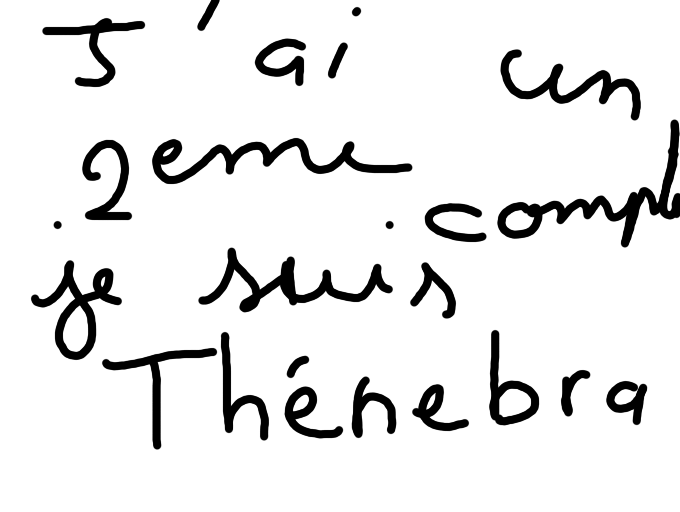 J'ai un
2eme compl
je suis
Thénebra